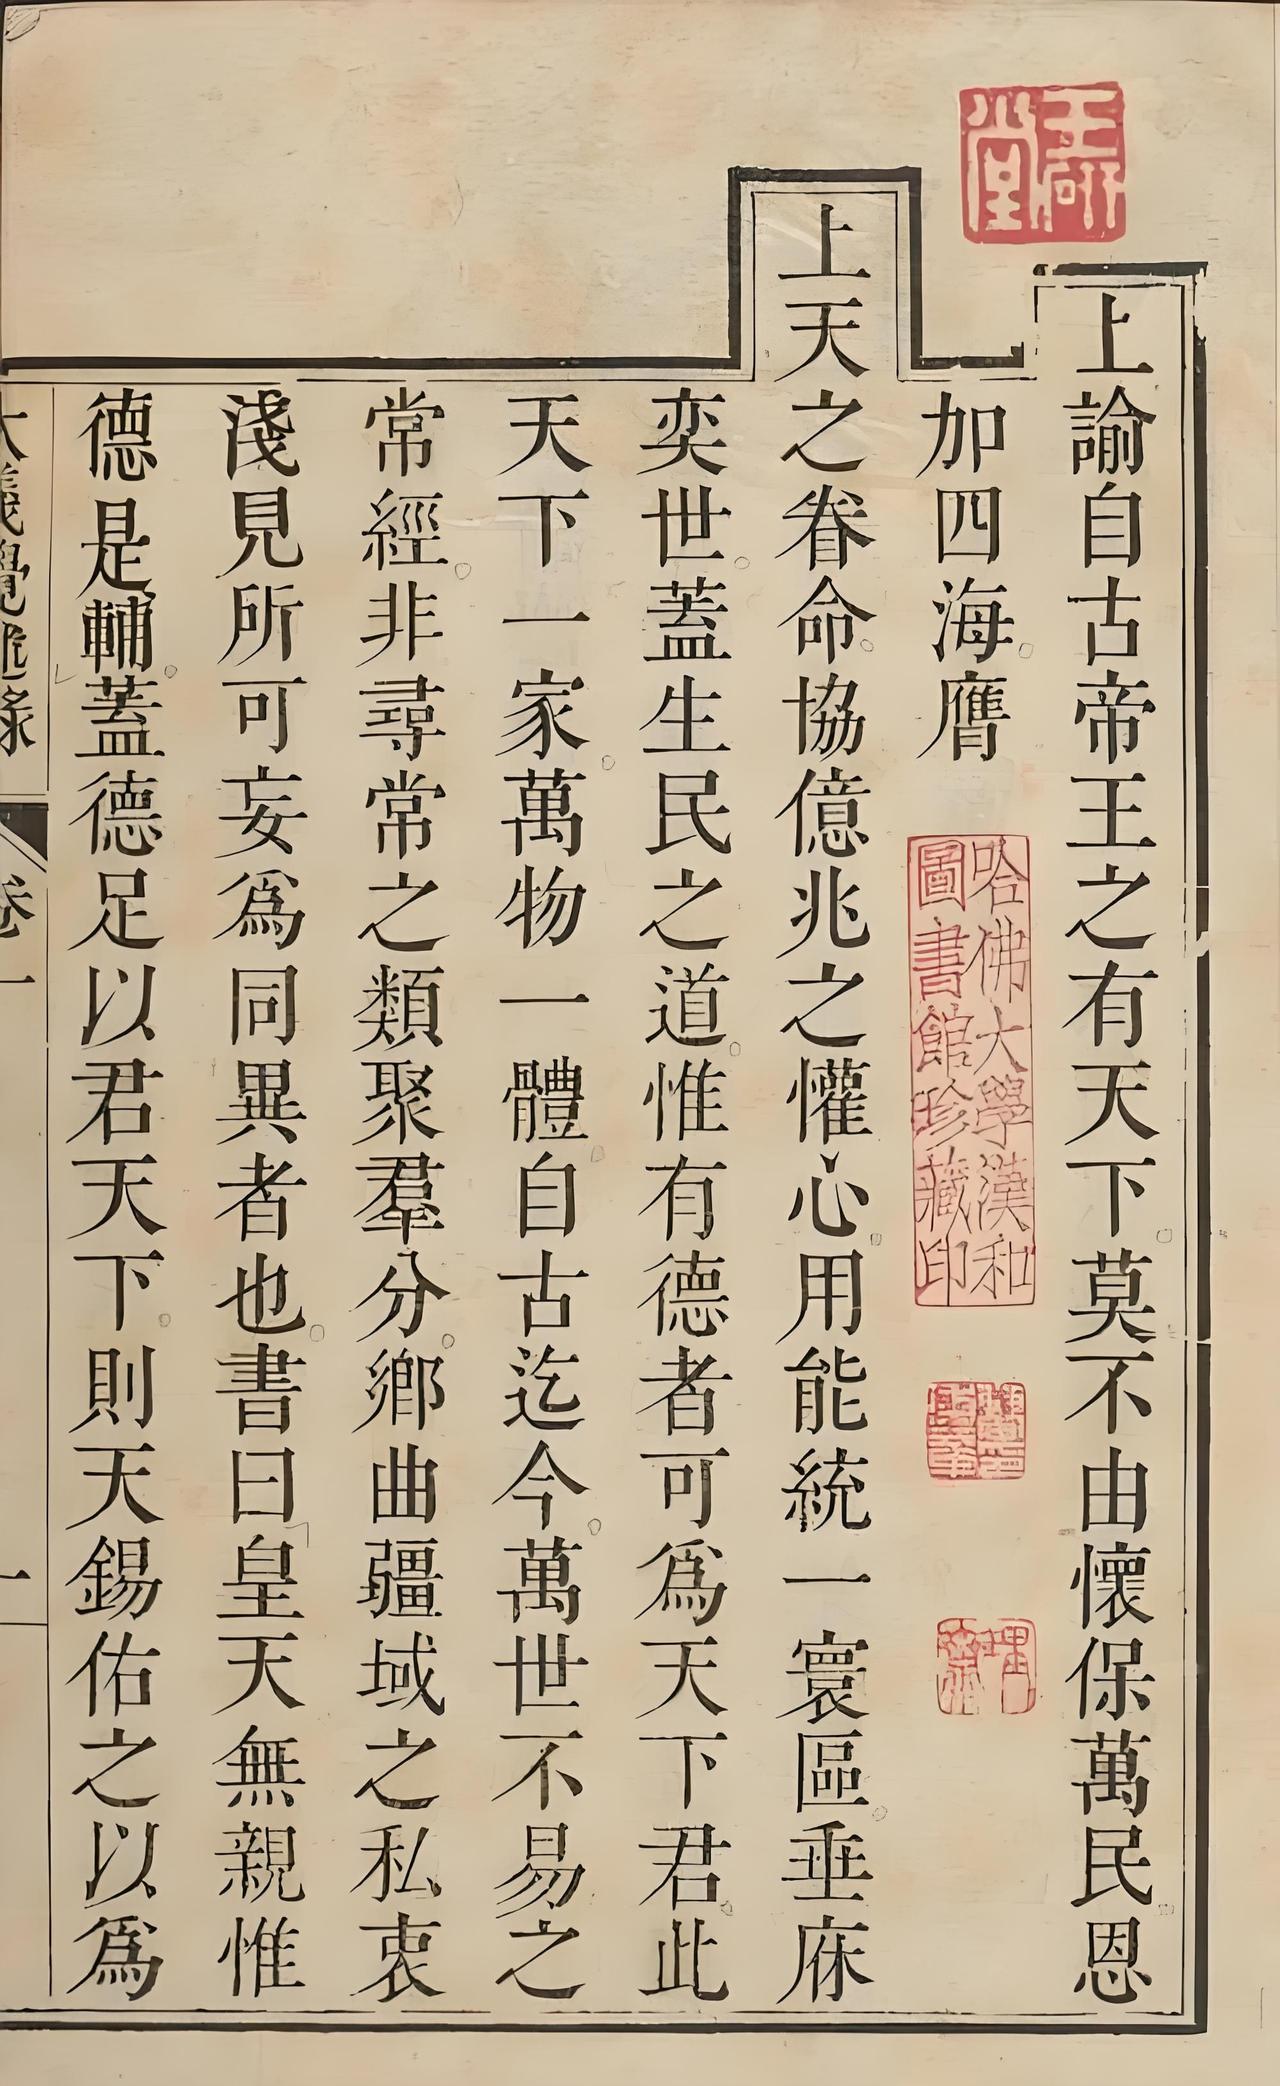 上諭自古帝王之有天下莫不由懷保萬民恩
加四海膺
上天之眷命協億兆之懽心用能統一寰區垂庥
奕世蓋生民之道惟有德者可爲天下君此
天下一家萬物一體自古迄今萬世不易之
常經非尋常之類聚羣分鄉曲疆域之私衷
淺見所可妄爲同異者也書曰皇天無親惟
德是輔蓋德足以君天下則天錫佑之以爲
大義覺迷錄
卷一
一
哈佛大學漢和
圖書館珍藏印